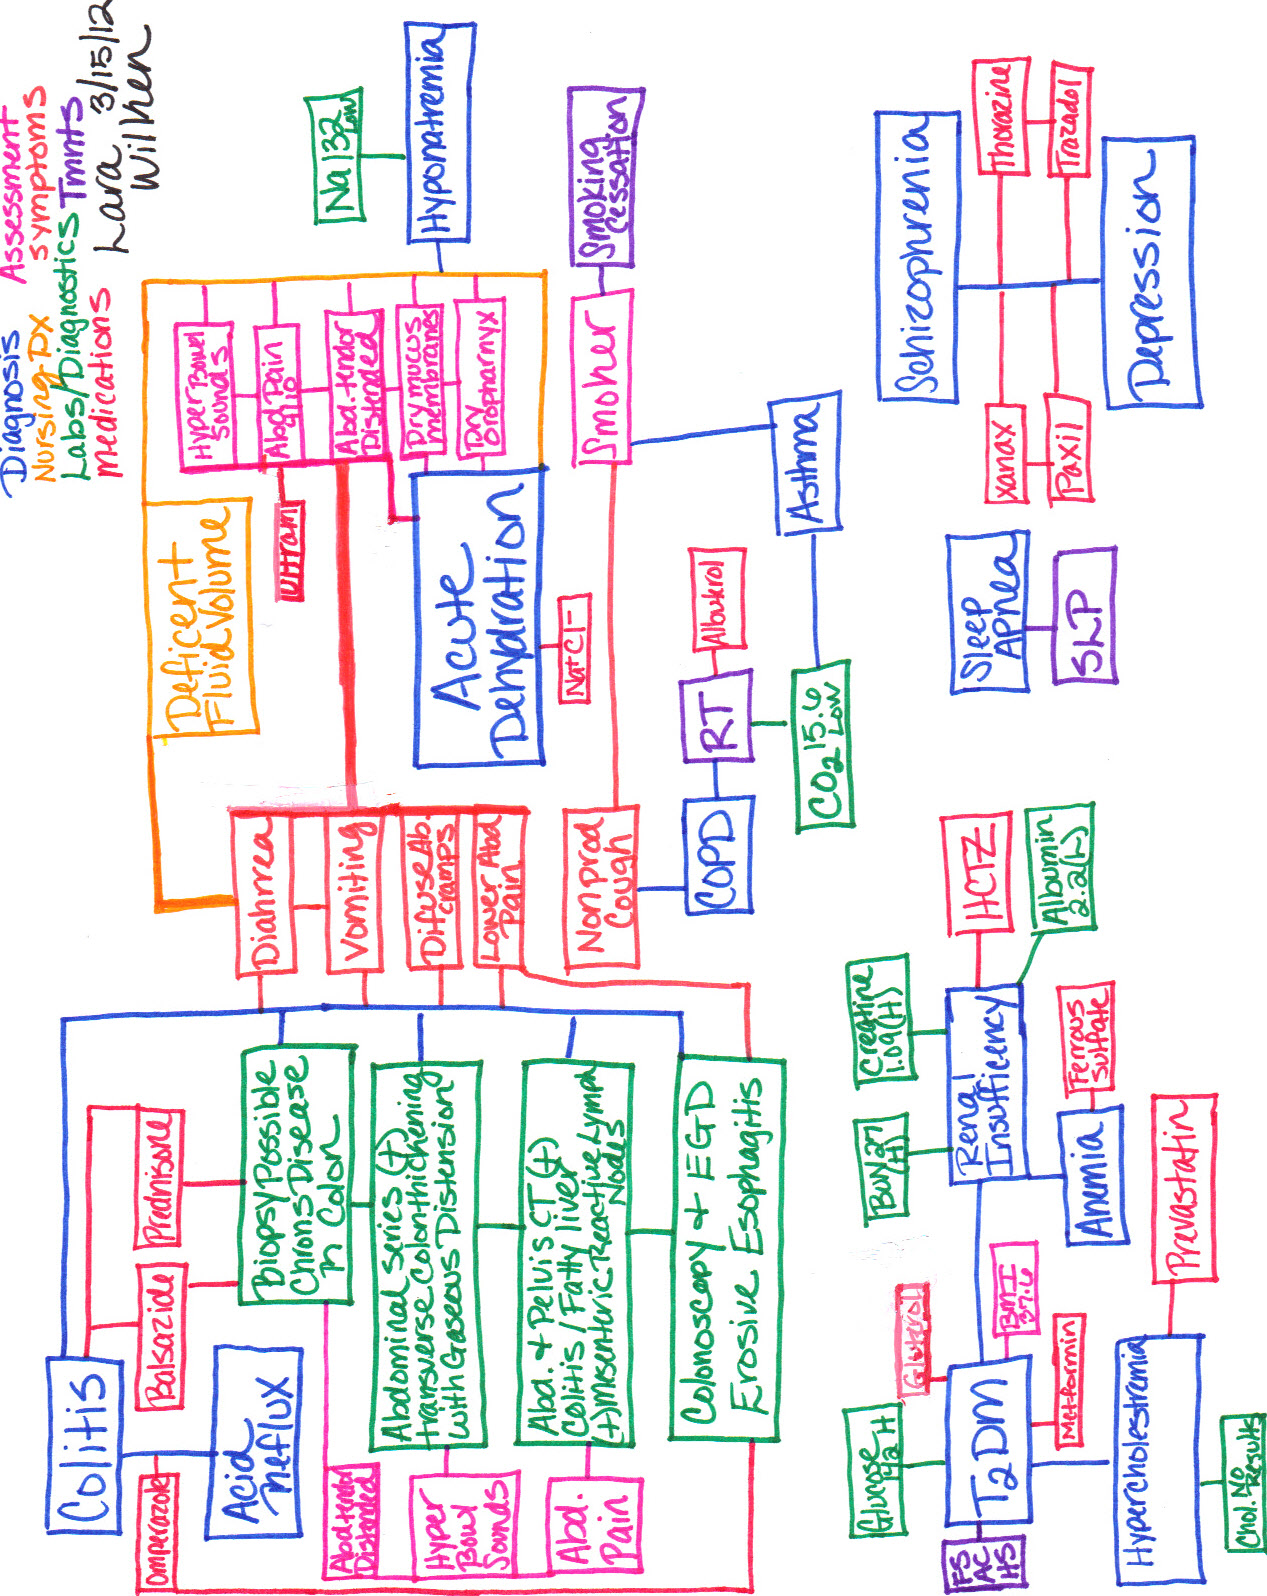 Diagnosis Assessment
Nursing Dx Symptoms
Labs/Diagnostics Tmnts
Medications
Lara 3/15/12
Wilken
Colitis
Omperazole
Acid
Reflux
Balsazide
Prednisone
Biopsy Possible
Chrons Disease
in Colon
Abdominal series (+)
transverse colon thickening
with Gaseous Distension
Abd. + Pelvis CT (+)
Colitis / Fatty liver
(+) Mesenteric Reactive Lymph
Nodes
Colonoscopy + EGD
Erosive Esophagitis
Abd tendor
Distended
Hyper
Bowl
Sounds
Abd.
Pain
Diahrrea
Vomiting
Difuse Ab.
cramps
Lower Abd
Pain
Deficent
Fluid Volume
Hyper Bowel
Sounds
Abd Pain
4/10
Abd. tendor
Distended
Dry mucus
membranes
Dry
Oropharnyx
Ultram
Acute
Dehydration
Na+Cl-
Na 132
Low
Hyponatremia
Smoking
Cessation
Smoker
Non prod
Cough
COPD
RT
Albuterol
CO2 15.6
Low
Asthma
Schizophrenia
Thorazine
Trazadol
Xanax
Paxil
Depression
Sleep
Apnea
SLP
Glucose
142 H
T2DM
FS
AC
HS
BMI
37.6
Metformin
Hypercholestremia
Chol. No
Results
Prevastatin
Renal
Insufficiency
BUN 27
(H)
Creatine
1.09 (H)
HCTZ
Albumin
2.2 (L)
Anemia
Ferrous
Sulfate